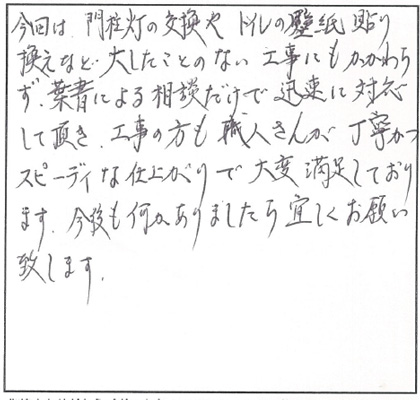 今回は、門柱灯の交換や トイレの壁紙 貼り
換えなど、大したことのない 工事にもかかわら
ず、葉書による相談だけで 迅速に対応
して頂き、工事の方も 職人さんが 丁寧かつ
スピーディな仕上がりで大変満足しており
ます。今後も何かありましたら宜しくお願い
致します。